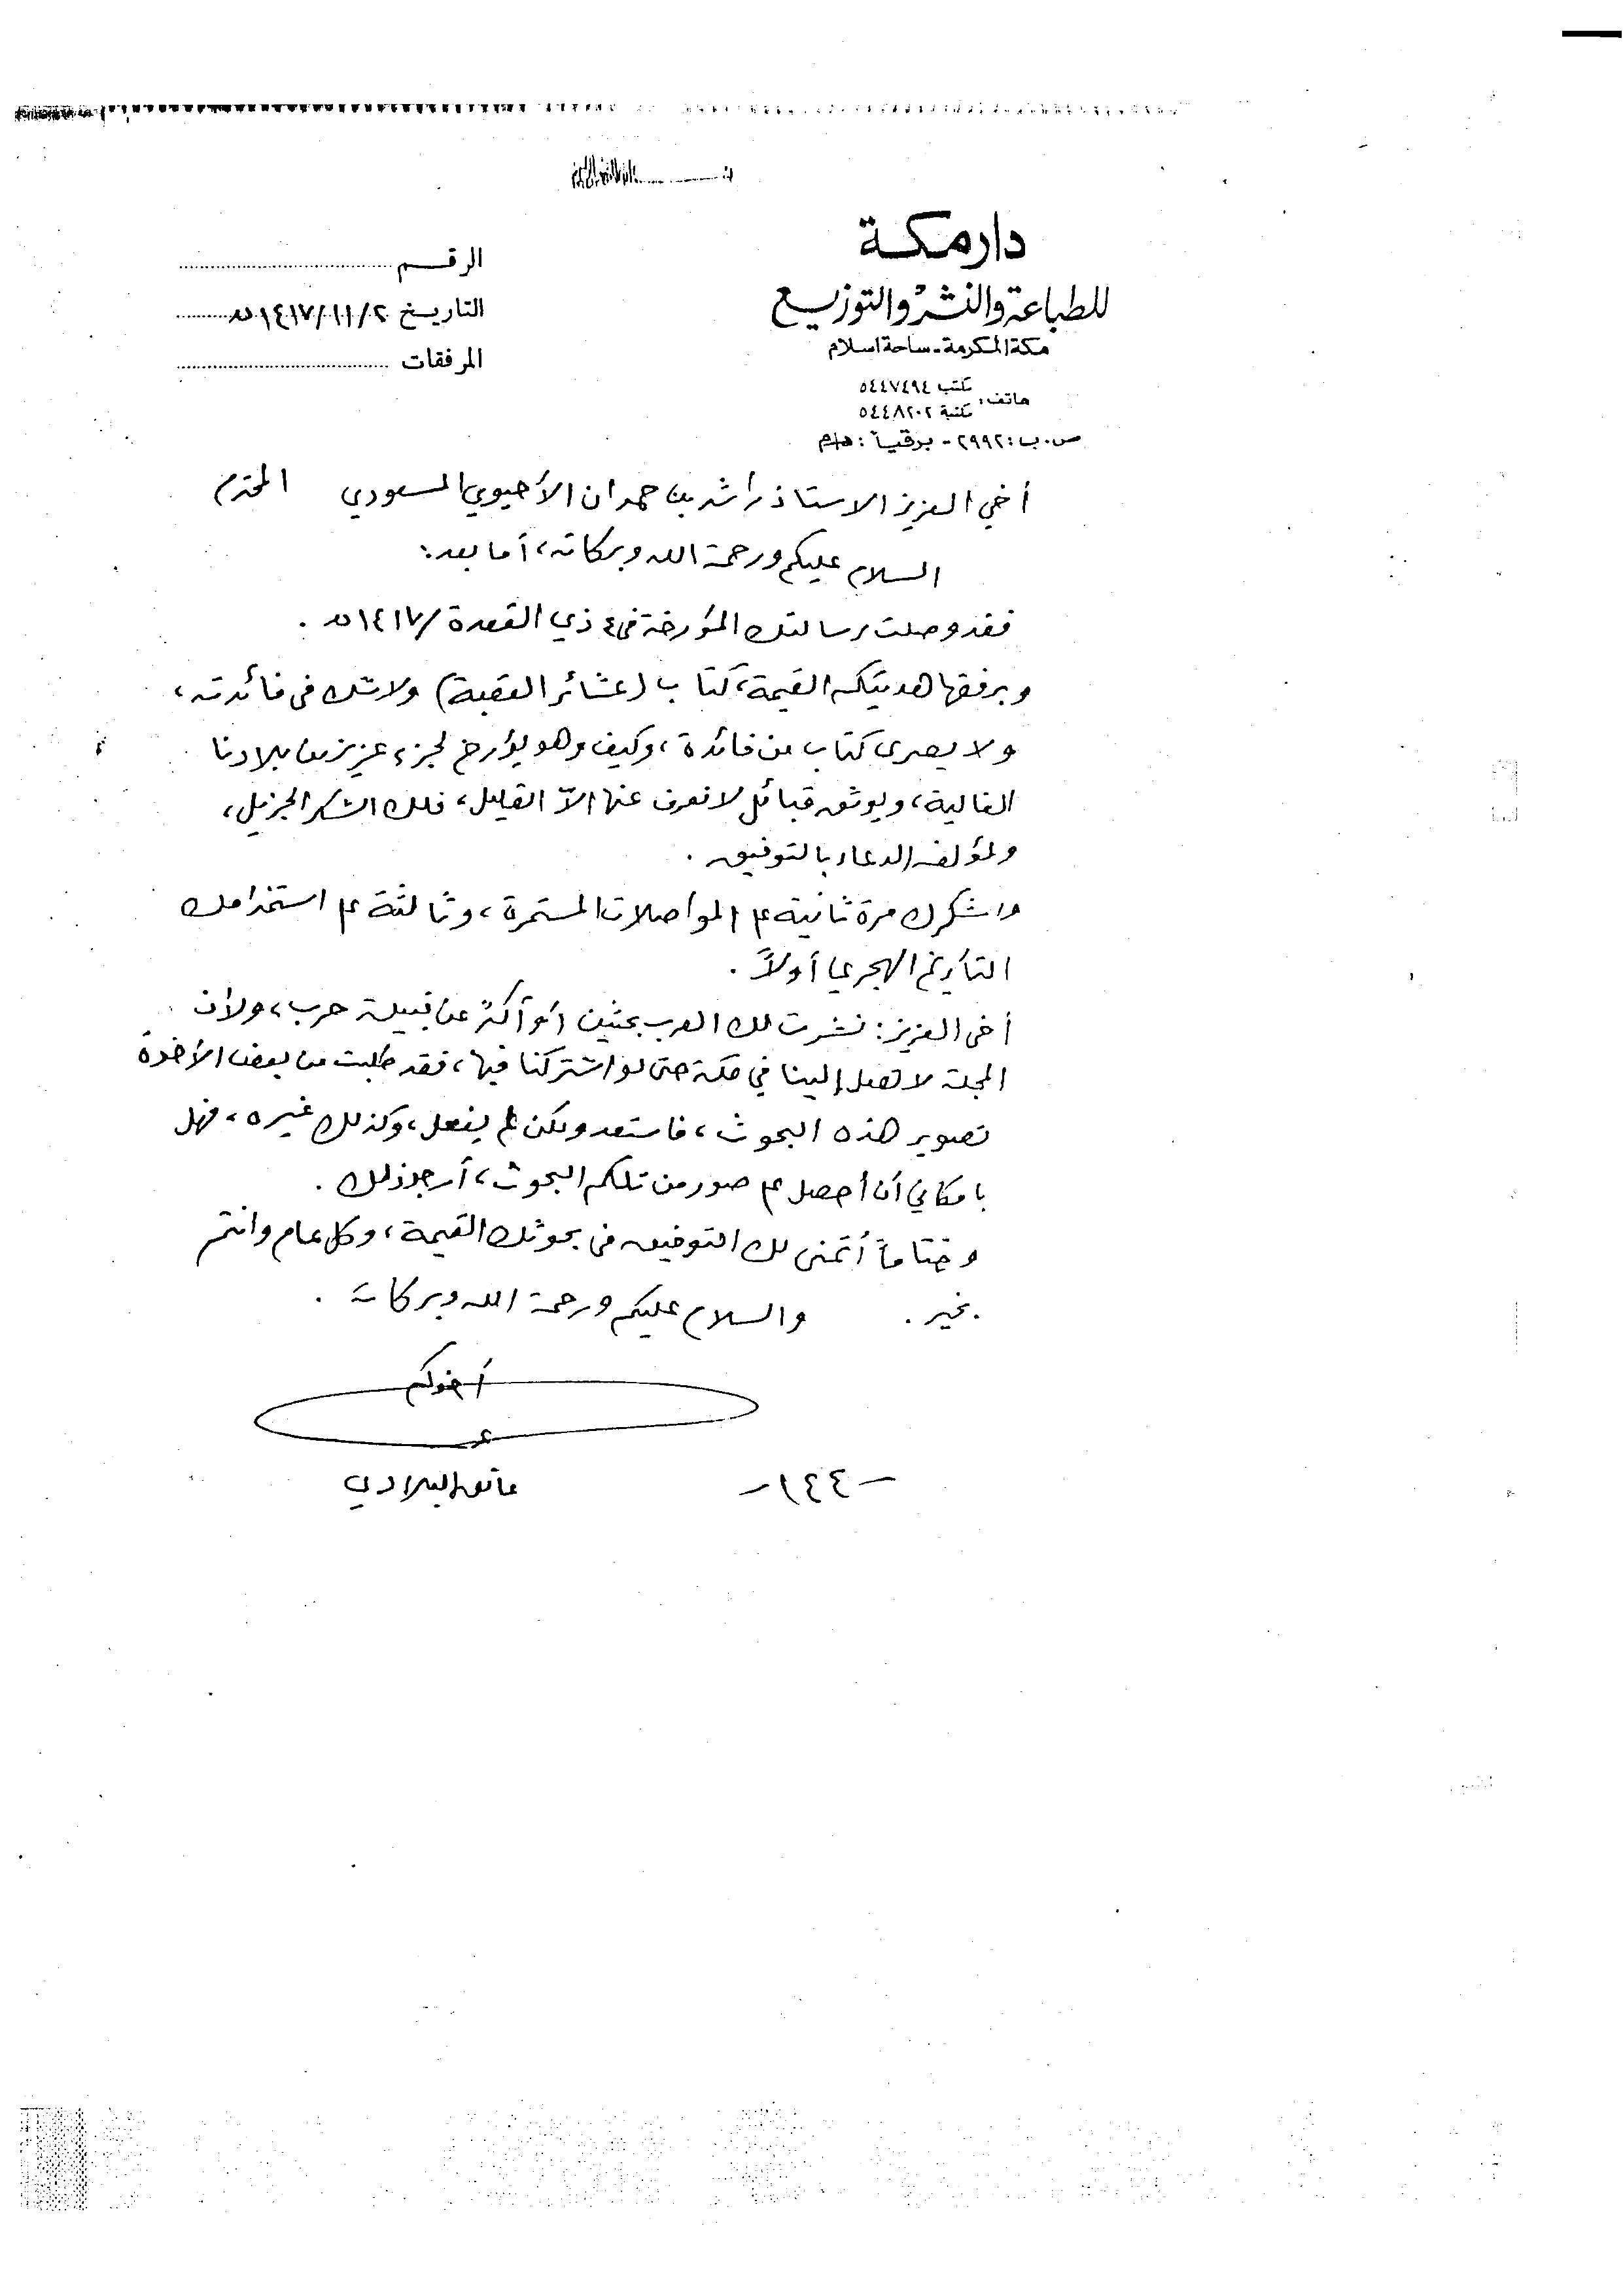 بسم الله الرحمن الرحيم
دار مكة
للطباعة والنشر والتوزيع
مكة المكرمة - ساحة اسلام
هاتف: مكتب ٥٤٤٧٤٩٤
مكتبة ٥٤٤٨٢٠٢
ص.ب: ٢٩٩٢ - برقياً: دام
الرقم
التاريخ ٢/١١/١٤١٧هـ
المرفقات
أخي العزيز الاستاذ راشد بن حمدان الأحيوي المسعودي المحترم
السلام عليكم ورحمة الله وبركاته، أما بعد:
فقد وصلت رسالتك المؤرخة في ٤ ذي القعدة/١٤١٧هـ.
وبرفقها هديتكم القيمة، كتاب (عشائر العقبة) ولاشك في فائدته،
ولا يعرى كتاب من فائدة، وكيف وهو يؤرخ لجزء عزيز من بلادنا
الغالية، ويوثق قبائل لا نعرف عنها الاّ القليل، فلك الشكر الجزيل،
ولمؤلفه الدعاء بالتوفيق.
واشكرك مرة ثانية على المواصلات المستمرة، وثالثة على استخدامك
التأريخ الهجري أولاً.
أخي العزيز: نشرت لك العرب بحثين أو أكثر عن قبيلة حرب، ولأن
المجلة لا تصل إلينا في مكة حتى لو اشتركنا فيها، فقد طلبت من بعض الأخوة
تصوير هذه البحوث، فاستعد ولكن لم يفعل، وكذلك غيره، فهل
بامكاني أن أحصل على صور من تلكم البحوث، أرجو ذلك.
وختاماً أتمنى لك التوفيق في بحوثك القيمة، وكل عام وانتم
بخير. والسلام عليكم ورحمة الله وبركاته.
أخوكم
عاتق البلادي
- ١٤٤ -